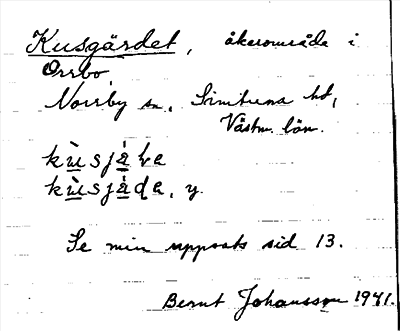 Kusgärdet, åkerområde i
Orrbo,
Norrby sn, Simtuna hd,
Västm. län.
kùsjä̀ɽa
kùsjä̀ḍa, y.
Se min uppsats sid 13.
Bernt Johansson 1941.